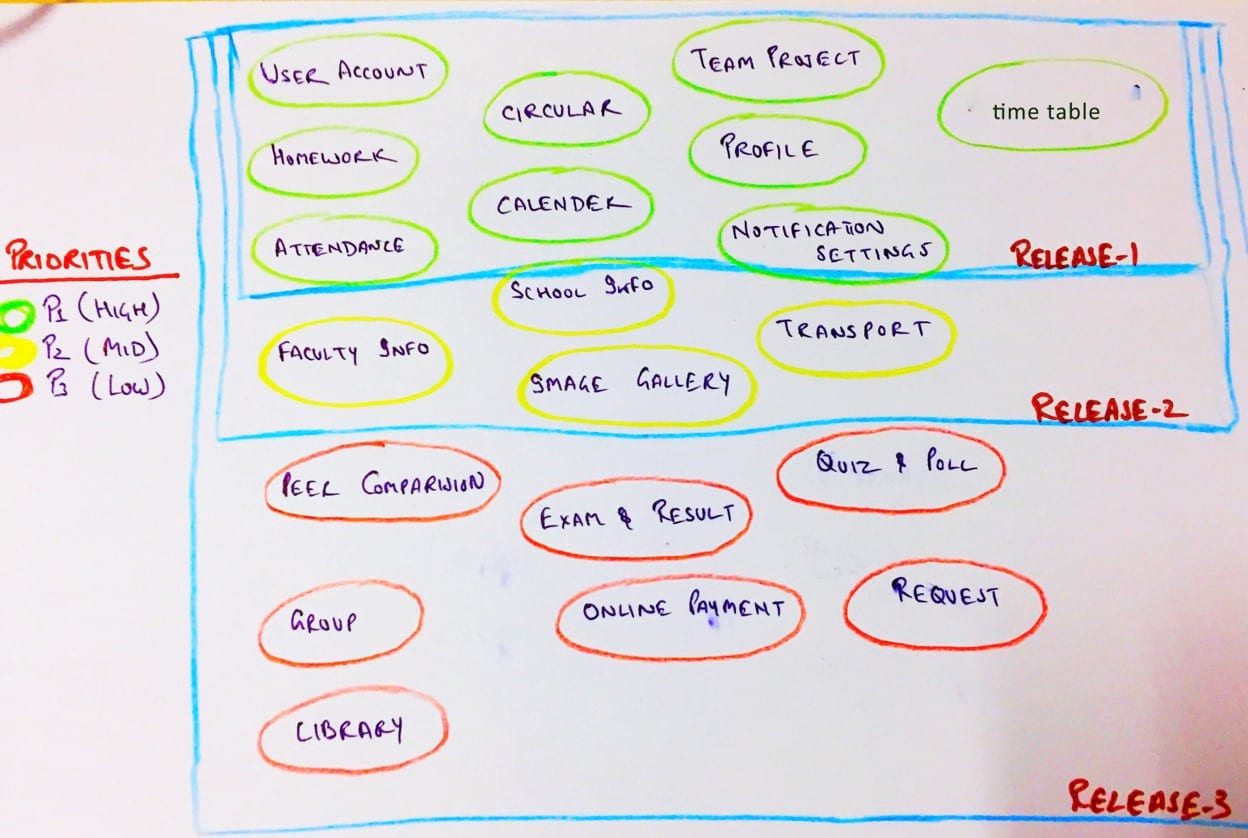 USER ACCOUNT
TEAM PROJECT
CIRCULAR
time table
HOMEWORK
PROFILE
CALENDER
ATTENDANCE
NOTIFICATION
SETTINGS
RELEASE-1
PRIORITIES
P1 (HIGH)
P2 (MID)
P3 (LOW)
SCHOOL INFO
TRANSPORT
FACULTY INFO
IMAGE GALLERY
RELEASE-2
PEER COMPARISION
QUIZ & POLL
EXAM & RESULT
GROUP
ONLINE PAYMENT
REQUEST
LIBRARY
RELEASE-3